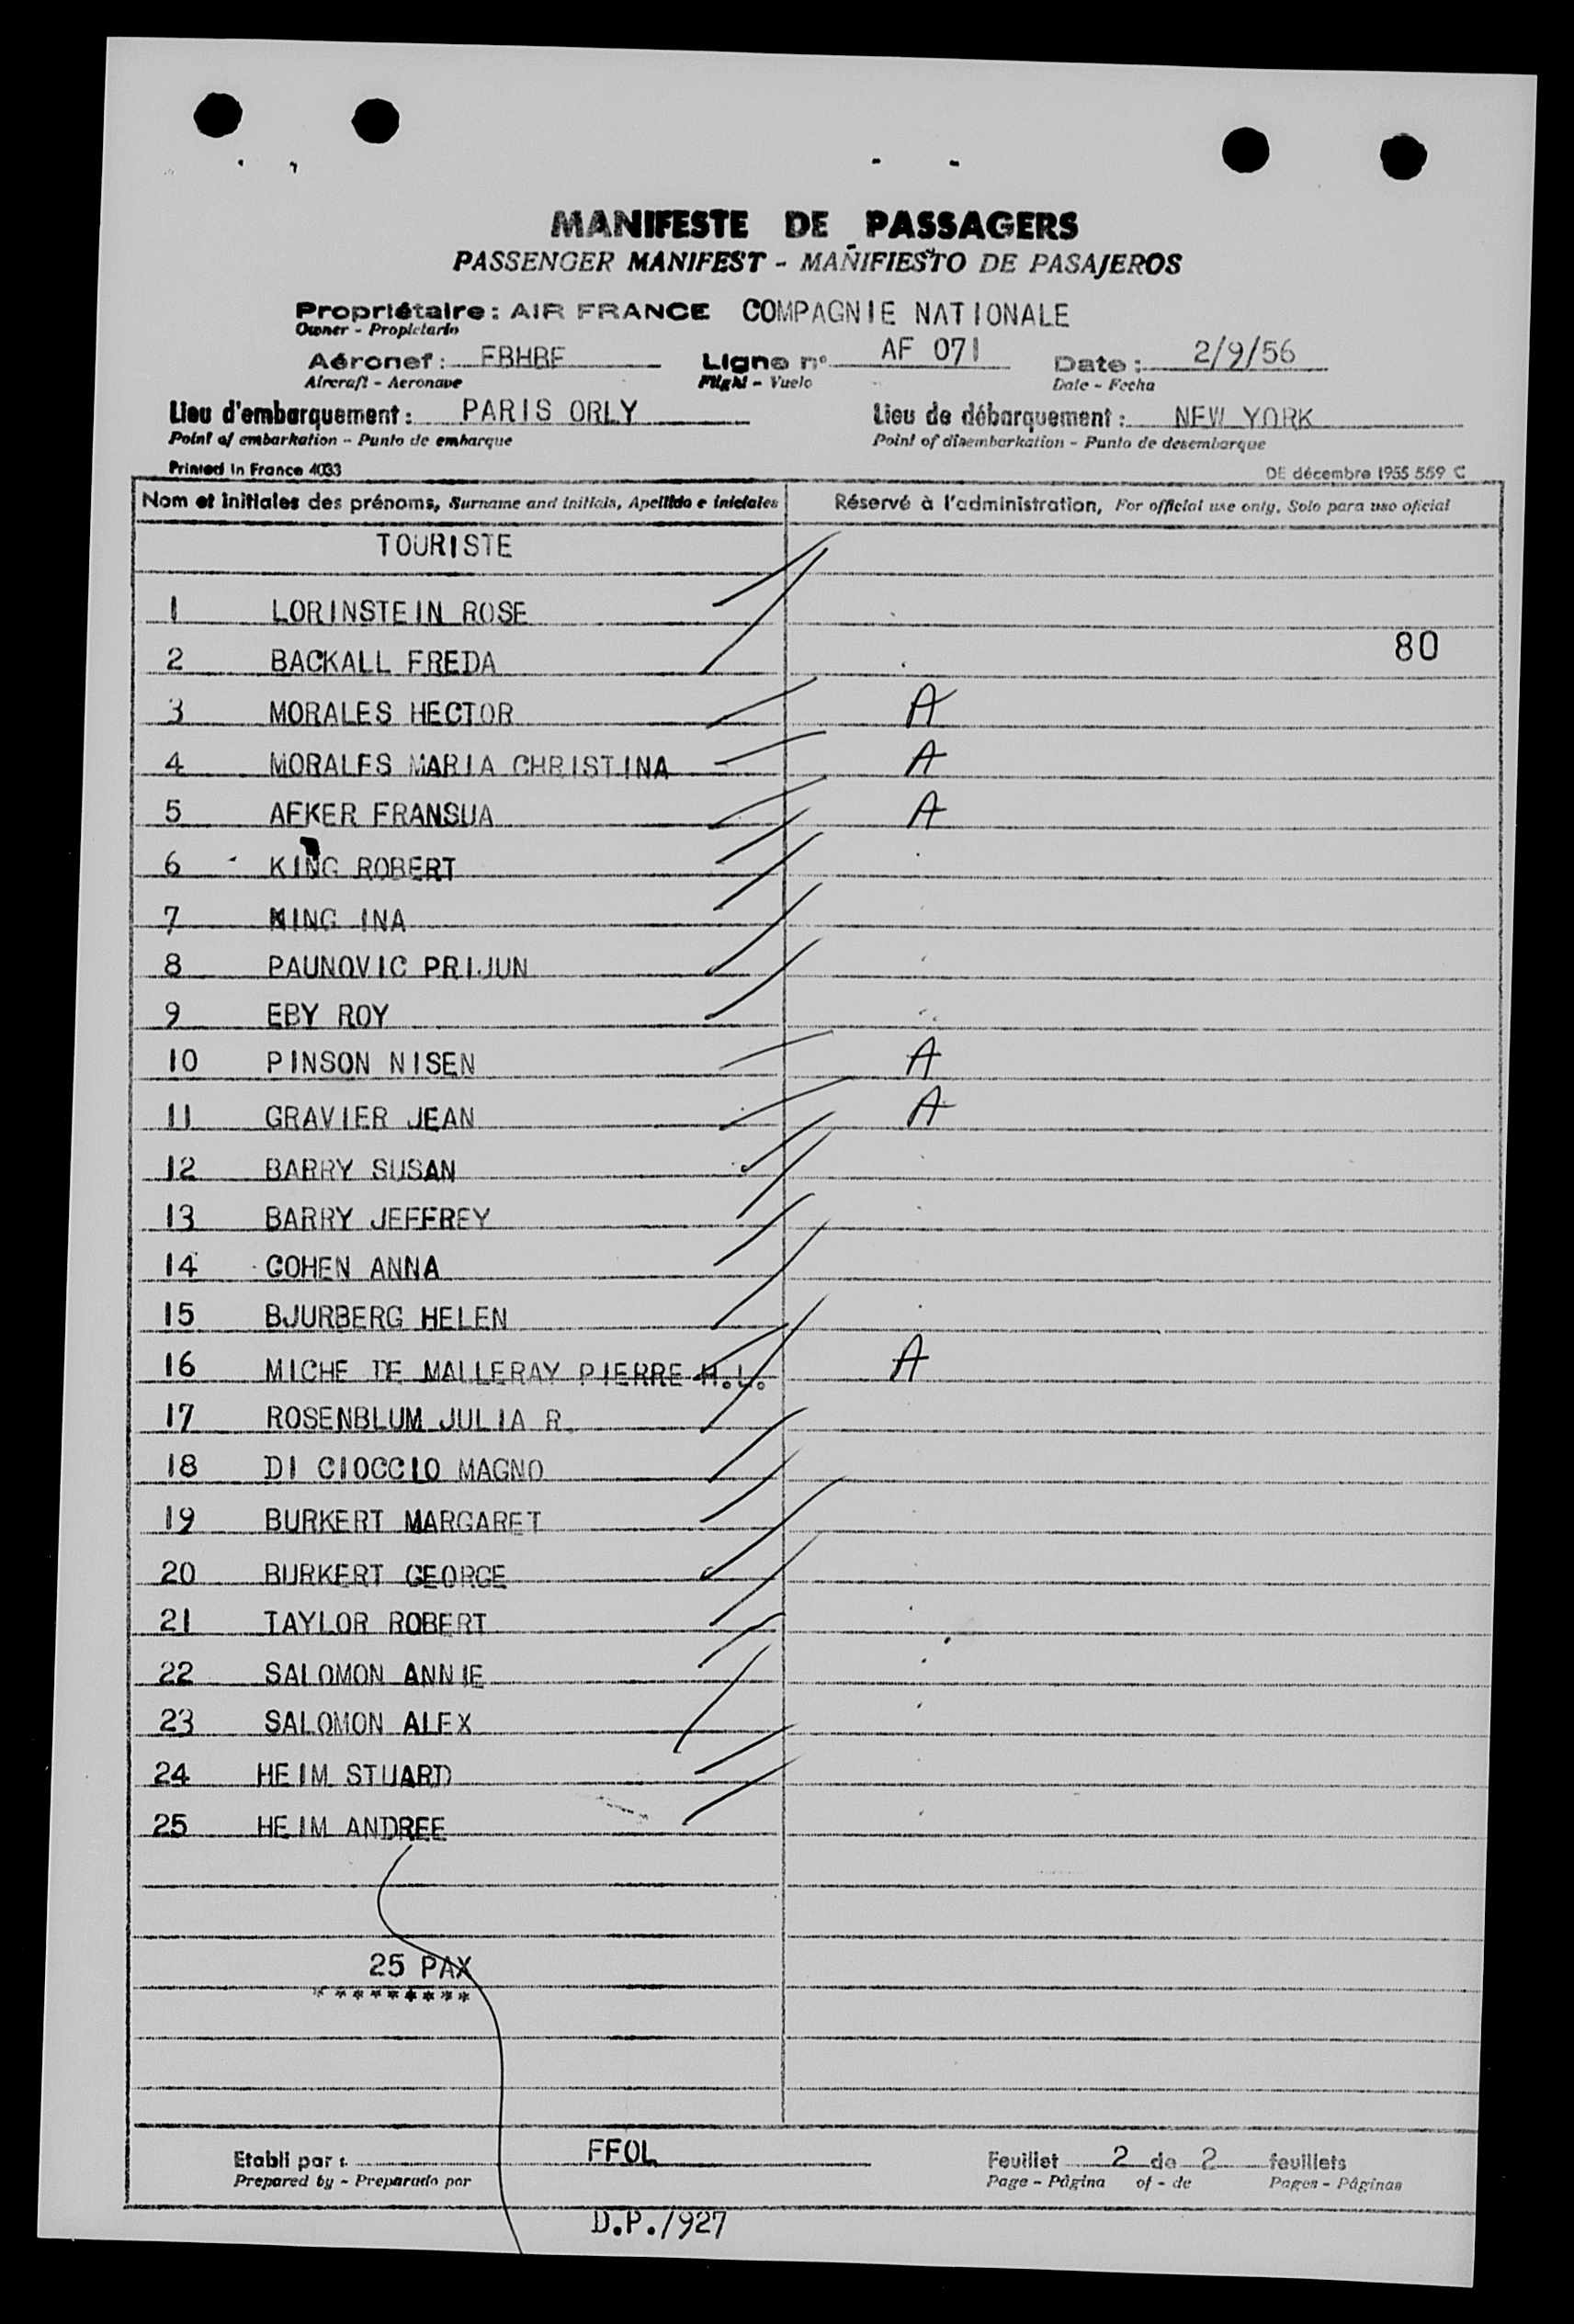 MANIFESTE DE PASSAGERS
PASSENGER MANIFEST - MAÑIFIESTO DE PASAJEROS
Propriétaire : AIR FRANCE COMPAGNIE NATIONALE
Owner - Propietario
Aéronef : FBHBF Ligne n° AF 071 Date : 2/9/56
Aircraft - Aeronave Flight - Vuelo Date - Fecha
Lieu d'embarquement : PARIS ORLY Lieu de débarquement : NEW YORK
Point of embarkation - Punto de embarque Point of disembarkation - Punto de desembarque
Printed in France 4033 DE décembre 1955 559 C
Nom et initiales des prénoms, Surname and initials, Apellido e iniciales Réservé à l'administration, For official use only, Solo para uso oficial
TOURISTE
1 LORINSTEIN ROSE
80
2 BACKALL FREDA
3 MORALES HECTOR A
4 MORALES MARIA CHRISTINA A
5 AFKER FRANSUA A
6 KING ROBERT
7 KING INA
8 PAUNOVIC PRIJUN
9 EBY ROY
10 PINSON NISEN A
11 GRAVIER JEAN A
12 BARRY SUSAN
13 BARRY JEFFREY
14 COHEN ANNA
15 BJURBERG HELEN
16 MICHE DE MALLERAY PIERRE H.L. A
17 ROSENBLUM JULIA R.
18 DI CIOCCIO MAGNO
19 BURKERT MARGARET
20 BURKERT GEORGE
21 TAYLOR ROBERT
22 SALOMON ANNIE
23 SALOMON ALEX
24 HEIM STUARD
25 HEIM ANDREE
25 PAX
*********
Etabli par : FFOL Feuillet 2 de 2 feuillets
Prepared by - Preparado por Page - Página of - de Pages - Páginas
D.P./927